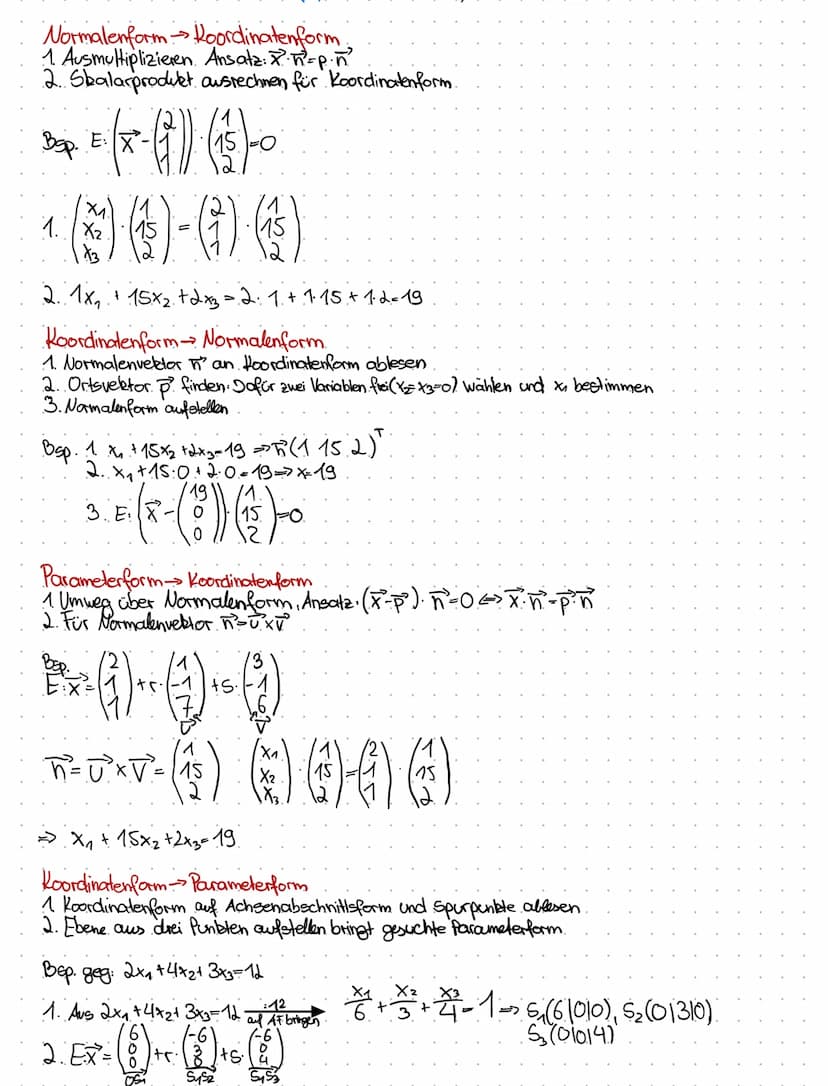 Normalenform → Koordinatenform
1. Ausmultiplizieren. Ansatz: x⃗·n⃗=p·n⃗
2. Skalarprodukt ausrechnen für Koordinatenform
Bsp. E: (x⃗ - (2 1 1)) · (1 15 2) = 0
1. (x₁ x₂ x₃) · (1 15 2) = (2 1 1) · (1 15 2)
2. 1x₁ + 15x₂ + 2x₃ = 2·1 + 1·15 + 1·2 = 19
Koordinatenform → Normalenform
1. Normalenvektor n⃗ an Koordinatenform ablesen
2. Ortsvektor p⃗ finden. Dafür zwei Variablen frei (x₂=x₃=0) wählen und x₁ bestimmen
3. Normalenform aufstellen
Bsp. 1. x₁ + 15x₂ + 2x₃ = 19 ⇒ n⃗(1 15 2)ᵀ
2. x₁ + 15·0 + 2·0 = 19 ⇒ x = 19
3. E: (x⃗ - (19 0 0)) · (1 15 2) = 0
Parameterform → Koordinatenform
1. Umweg über Normalenform, Ansatz: (x⃗-p⃗)·n⃗=0 ⇔ x⃗·n⃗=p⃗·n⃗
2. Für Normalenvektor n⃗=u⃗×v⃗
Bsp.
E: x⃗ = (2 1 1) + r·(1 -1 7) + s·(3 -1 6)
u⃗ v⃗
n⃗ = u⃗ × v⃗ = (1 15 2) (x₁ x₂ x₃) · (1 15 2) = (2 1 1) · (1 15 2)
⇒ x₁ + 15x₂ + 2x₃ = 19
Koordinatenform → Parameterform
1. Koordinatenform auf Achsenabschnittsform und Spurpunkte ablesen
2. Ebene aus drei Punkten aufstellen bringt gesuchte Parameterform
Bsp. geg: 2x₁ + 4x₂ + 3x₃ = 12
1. Aus 2x₁ + 4x₂ + 3x₃ = 12 :12 auf AF bringen x₁/6 + x₂/3 + x₃/4 = 1 ⇒ S₁(6|0|0), S₂(0|3|0)
S₃(0|0|4)
2. E: x⃗ = (6 0 0) + r·(-6 3 0) + s·(-6 0 4)
OS₁ S₁S₂ S₁S₃